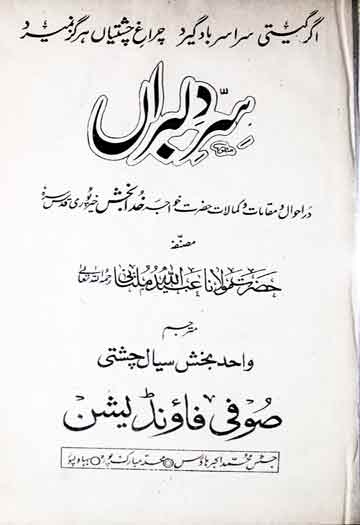 اگر گیتی سراسر باد گیرد چراغِ چشتیاں ہرگز نمیرد
سِرِّ دلبراں
در احوال و مقامات و کمالات حضرت خواجہ خدا بخش خیرپوری قدس سرہٗ
مصنفہ
حضرت مولانا عبیداللہ ملتانی رحمۃ اللہ تعالیٰ
مترجم
واحد بخش سیال چشتی
صوفی فاؤنڈیشن
جسٹس محمد اکبر ہاؤس محلہ مبارکپورہ بہاولپور